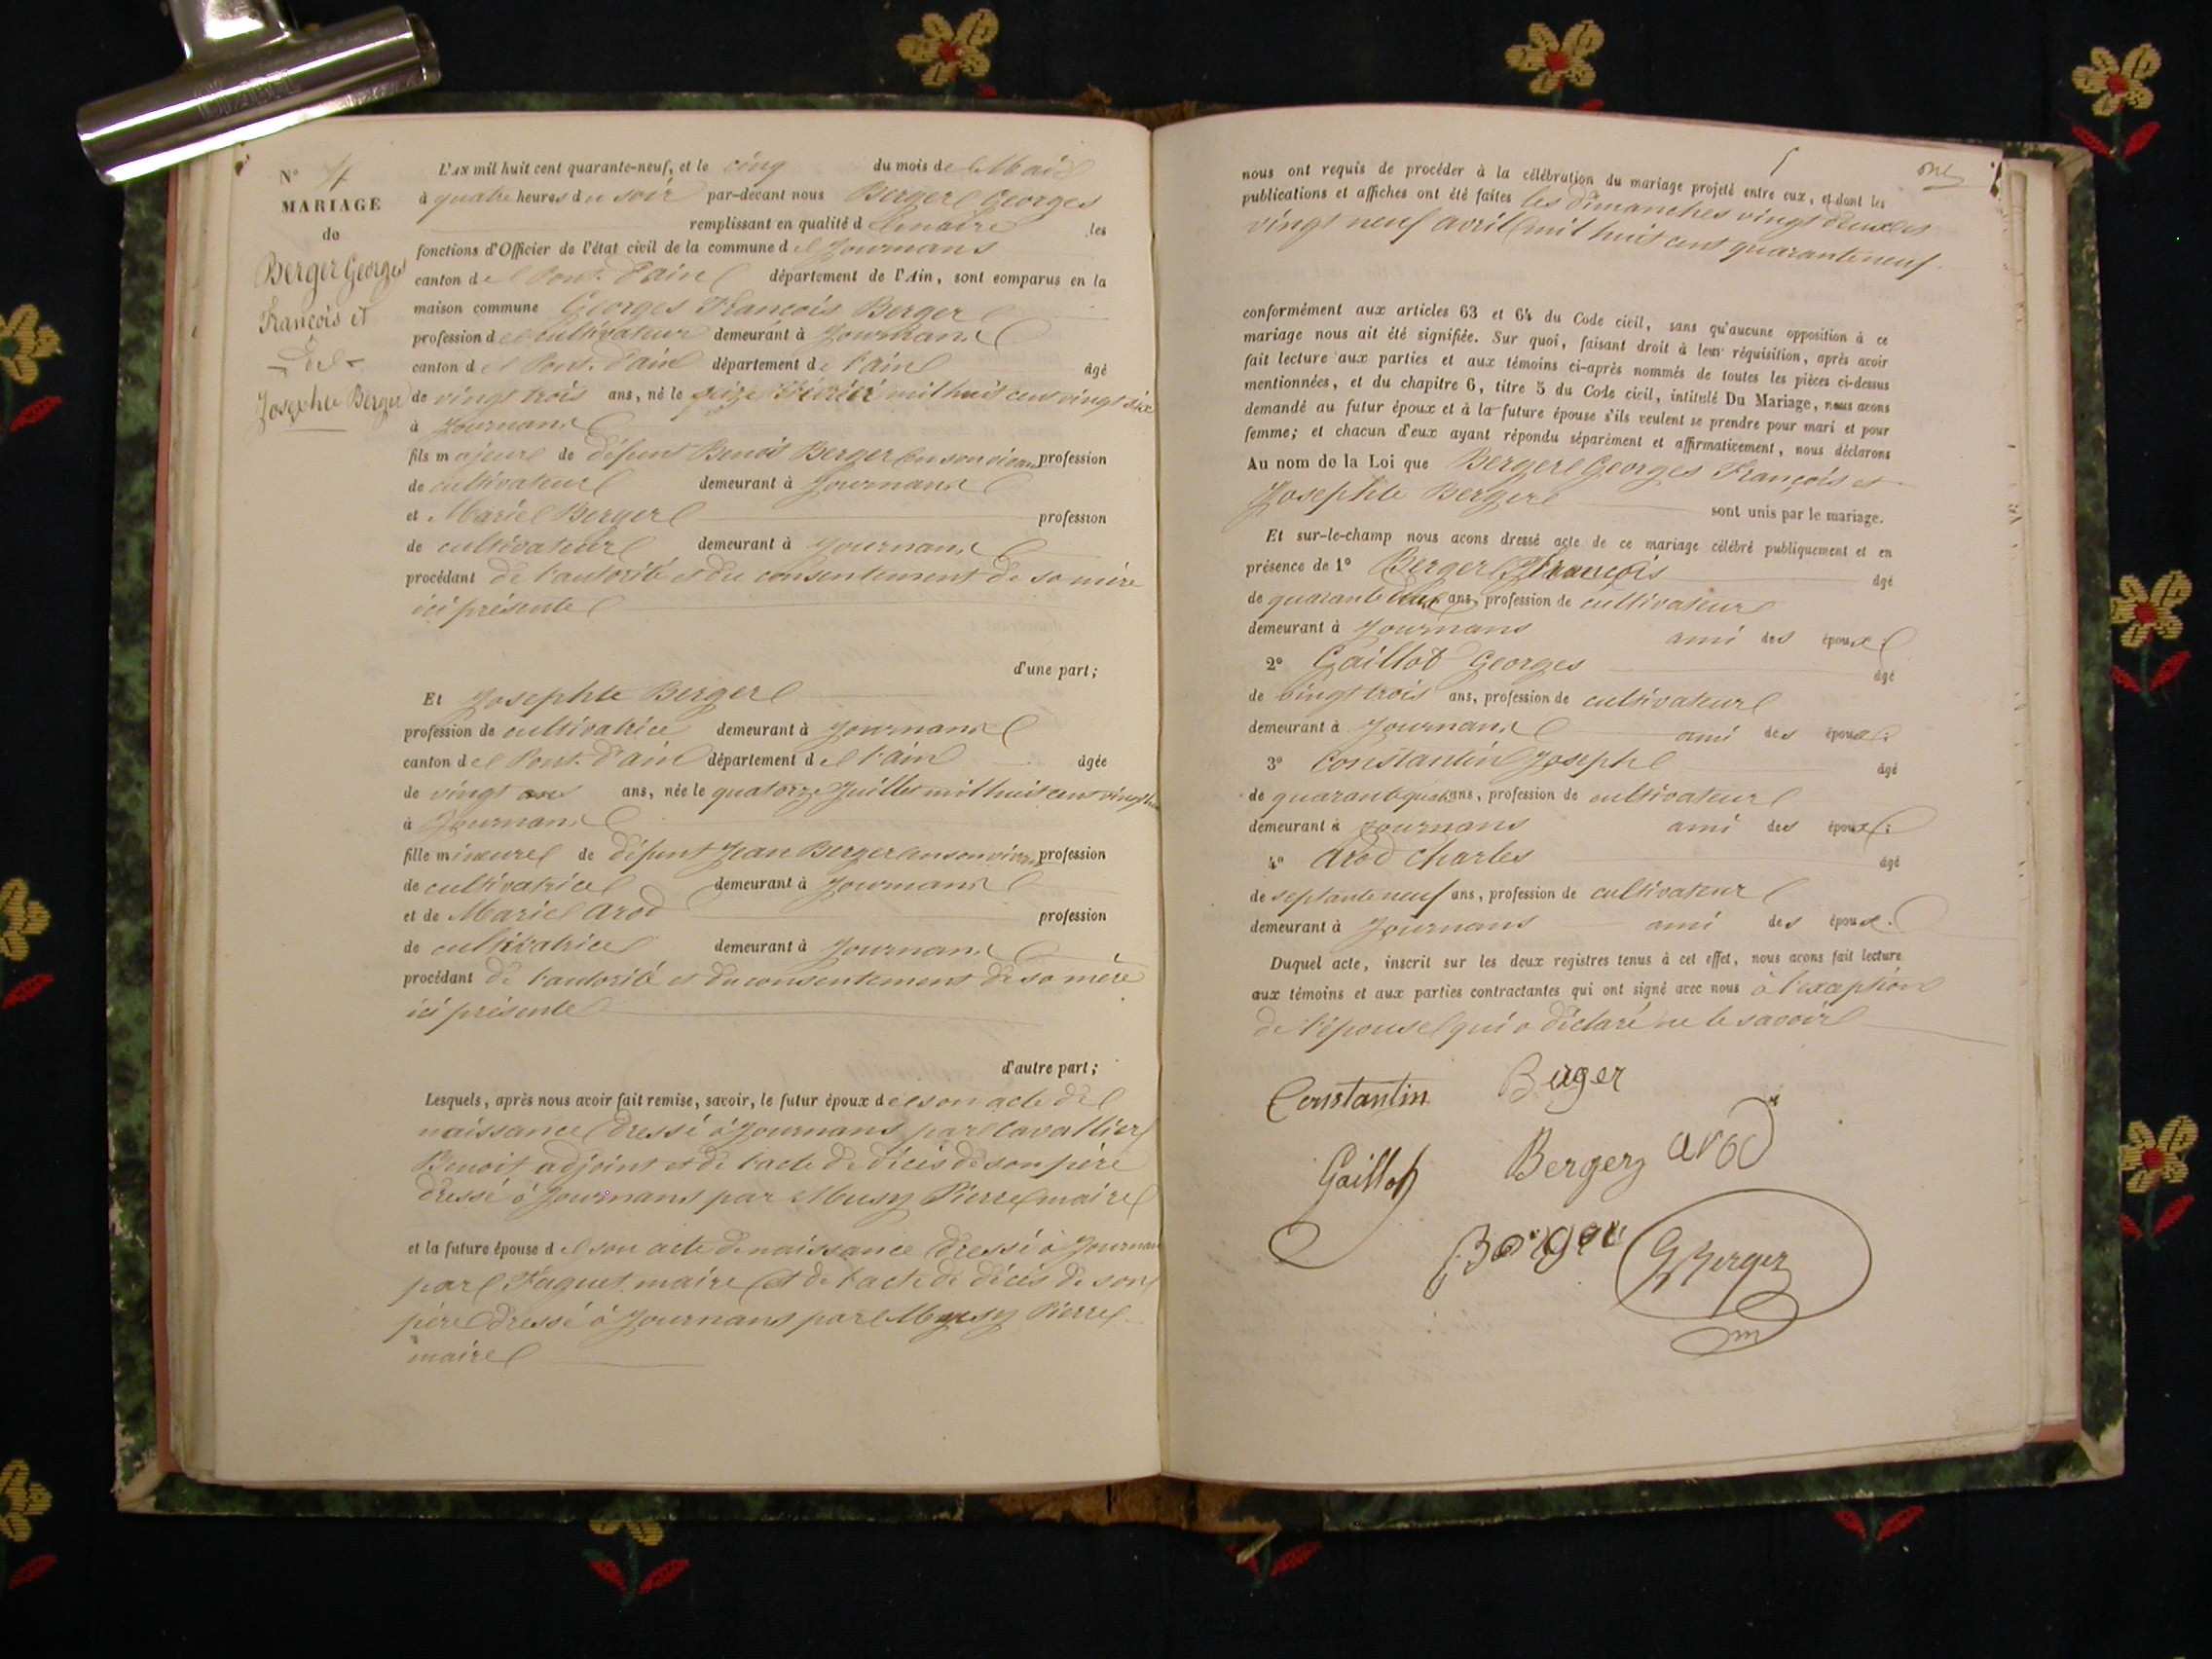 N° 4
MARIAGE
de
Berger Georges
François et
de
Josephte Berger
L'AN mil huit cent quarante-neuf, et le cinq du mois de Mai
à quatre heures du soir par-devant nous Berger Georges
remplissant en qualité de maire les
fonctions d'Officier de l'état civil de la commune de Journans
canton de Pont-d'ain département de l'Ain, sont comparus en la
maison commune Georges François Berger
profession de cultivateur demeurant à Journans
canton de Pont-d'ain département de l'ain âgé
de vingt trois ans, né le seize Février mil huit cent vingt six
à Journans
fils majeur de défunt Benoit Berger en son vivant profession
de cultivateur demeurant à Journans
et Marie Berger profession
de cultivateur demeurant à Journans
procédant de l'autorité et du consentement de sa mère
ici présente
d'une part;
Et Josephte Berger
profession de cultivatrice demeurant à Journans
canton de Pont-d'ain département de l'ain âgée
de vingt ans, née le quatorze Juillet mil huit cent vingt
à Journans
fille mineure de défunt Jean Berger en son vivant profession
de cultivatrice demeurant à Journans
et de Marie Arod profession
de cultivatrice demeurant à Journans
procédant de l'autorité et du consentement de sa mère
ici présente
d'autre part;
Lesquels, après nous avoir fait remise, savoir, le futur époux de son acte de
naissance dressé à Journans par Cavallier
Benoit adjoint et de l'acte de décès de son père
dressé à Journans par Musy Pierre maire
et la future épouse de son acte de naissance dressé à Journans
par Faguet maire et de l'acte de décès de son
père dressé à Journans par Musy Pierre
maire
nous ont requis de procéder à la célébration du mariage projeté entre eux, et dont les
publications et affiches ont été faites les dimanches vingt deux et
vingt neuf avril mil huit cent quarante neuf.
conformément aux articles 63 et 64 du Code civil, sans qu'aucune opposition à ce
mariage nous ait été signifiée. Sur quoi, faisant droit à leur réquisition, après avoir
fait lecture aux parties et aux témoins ci-après nommés de toutes les pièces ci-dessus
mentionnées, et du chapitre 6, titre 5 du Code civil, intitulé Du Mariage, nous avons
demandé au futur époux et à la future épouse s'ils veulent se prendre pour mari et pour
femme; et chacun d'eux ayant répondu séparément et affirmativement, nous déclarons
Au nom de la Loi que Berger Georges François et
Josephte Berger sont unis par le mariage.
Et sur-le-champ nous avons dressé acte de ce mariage célébré publiquement et en
présence de 1° Berger François âgé
de quarante deux ans, profession de cultivateur
demeurant à Journans ami des époux;
2° Gaillot Georges âgé
de vingt trois ans, profession de cultivateur
demeurant à Journans ami des époux;
3° Constantin Joseph âgé
de quarante quatre ans, profession de cultivateur
demeurant à Journans ami des époux;
4° Arod Charles âgé
de septante neuf ans, profession de cultivateur
demeurant à Journans ami des époux.
Duquel acte, inscrit sur les deux registres tenus à cet effet, nous avons fait lecture
aux témoins et aux parties contractantes qui ont signé avec nous à l'exception
de l'épouse qui a déclaré ne le savoir
Constantin Berger
Gaillot Berger arod
Berger G Berger